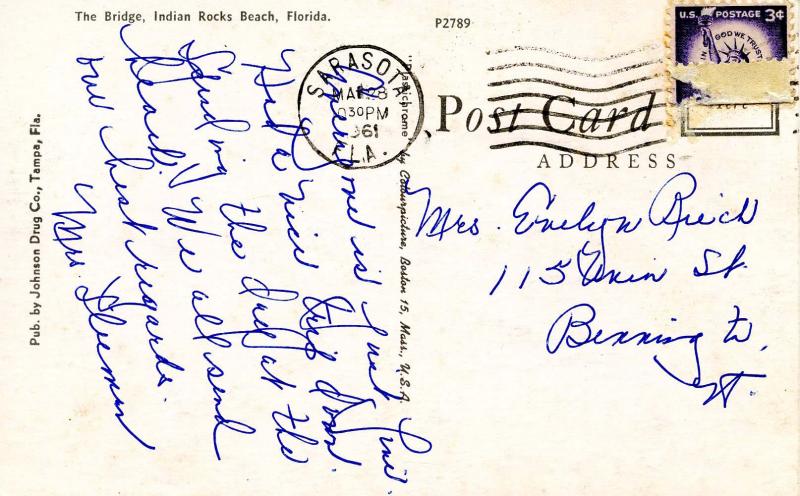 The Bridge, Indian Rocks Beach, Florida.
P2789
U.S. POSTAGE 3¢
IN GOD WE TRUST
SARASOTA
MAR 28
030 PM
1961
FLA.
Post Card
ADDRESS
Mrs. Evelyn Reich
115 Union St.
Bennington,
Vt.
Everyone is just fine.
Had a nice trip down.
Spending the day at the
beach. We all send
our best regards.
Mrs.
Pub. by Johnson Drug Co., Tampa, Fla.
"Plastichrome" by Colourpicture, Boston 15, Mass., U.S.A.